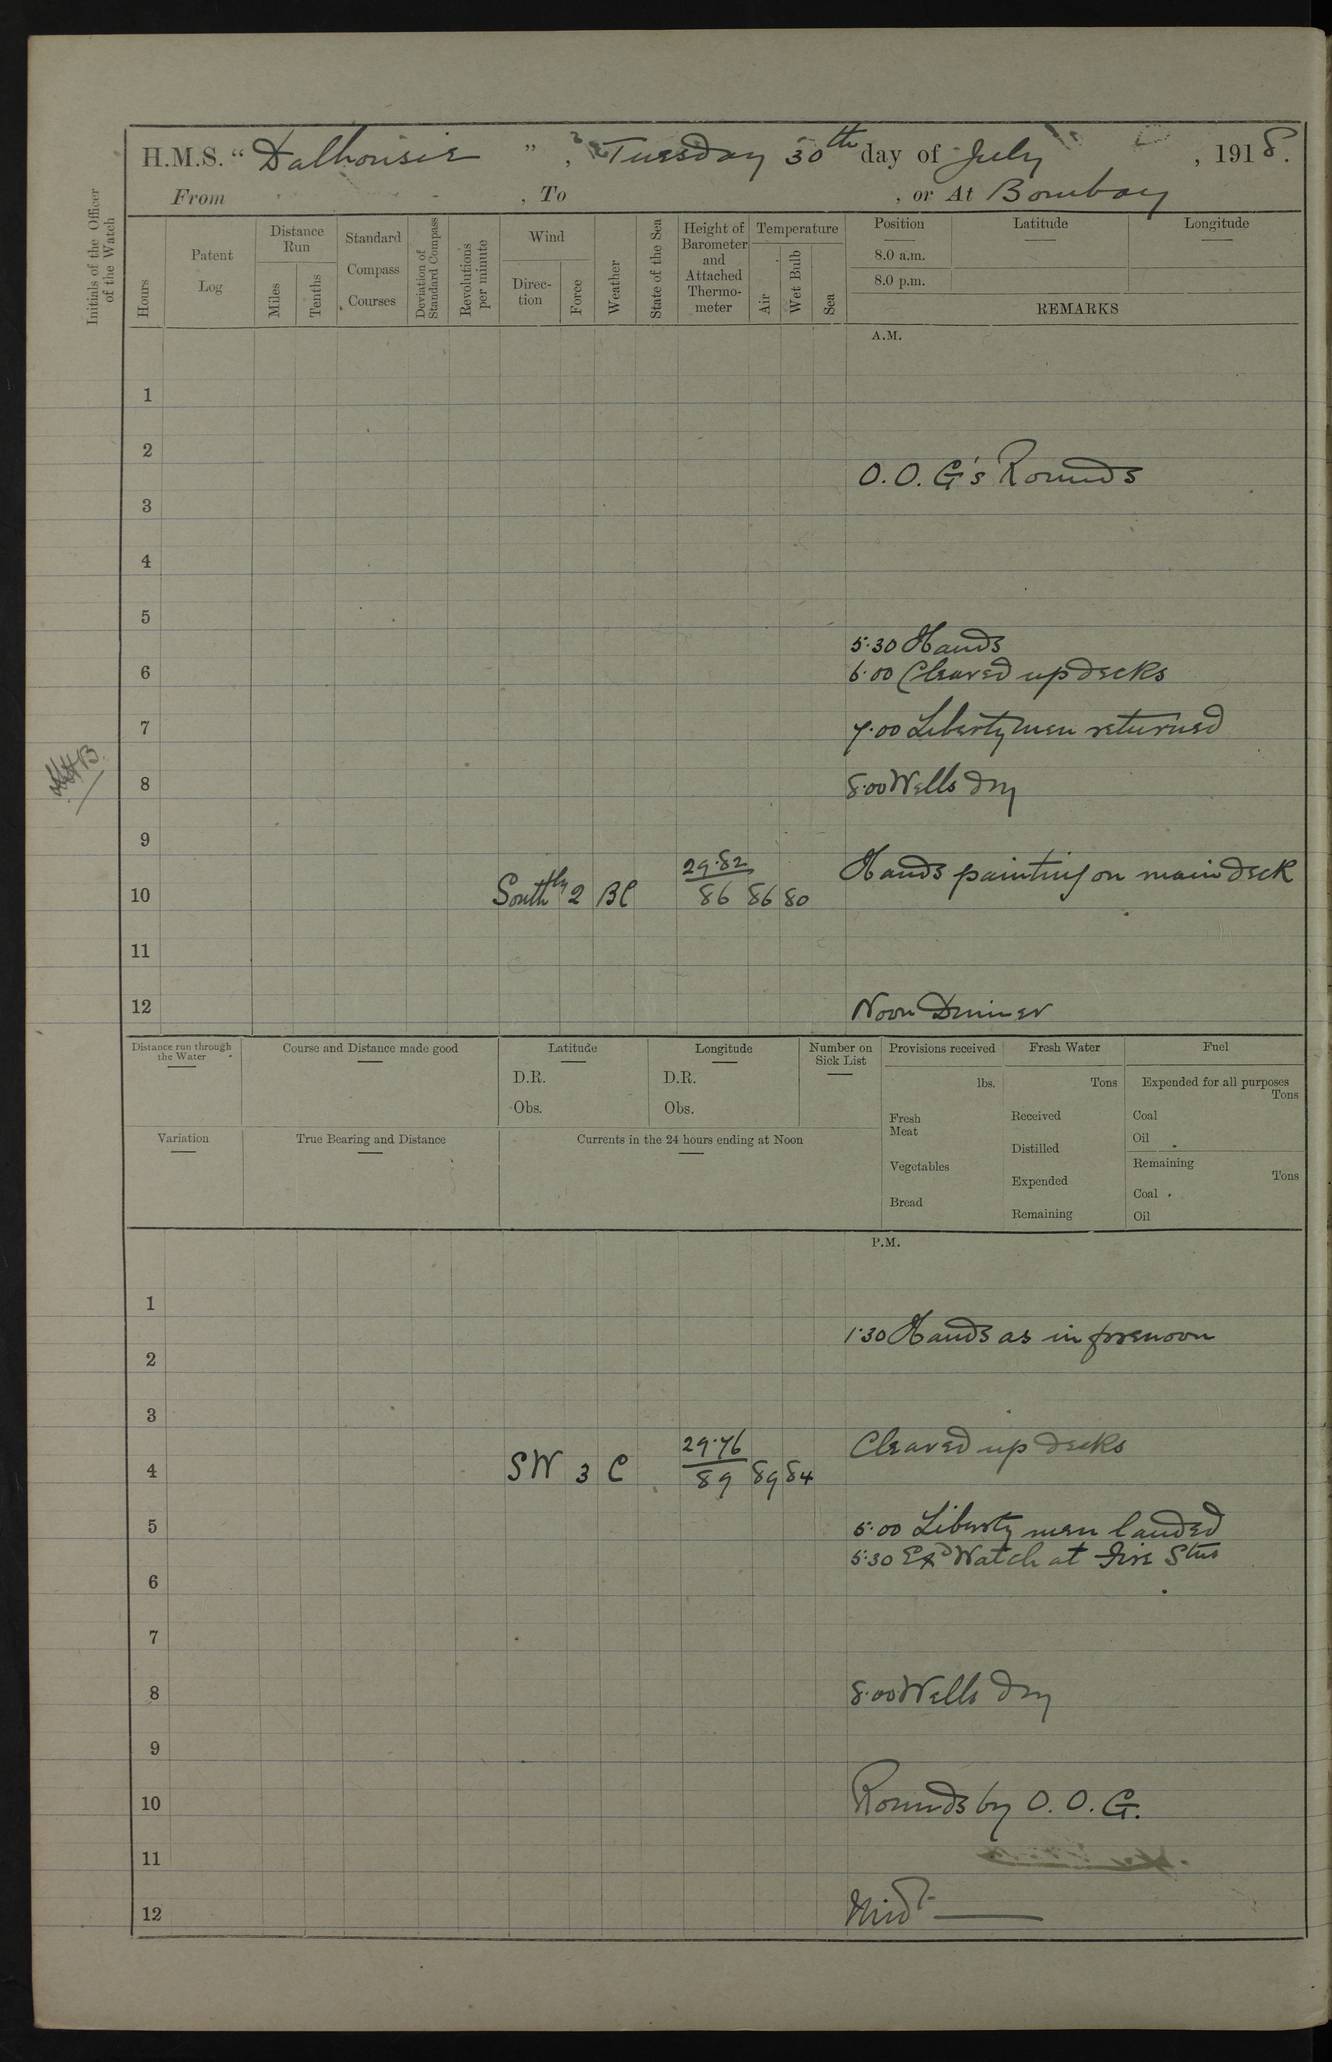 H.M.S. "Dalhousie", Tuesday 30th day of July, 1918.
From , To , or At Bombay
Initials of the Officer of the Watch
Hours
Patent Log
Distance Run
Miles
Tenths
Standard Compass Courses
Deviation of Standard Compass
Revolutions per minute
Wind
Direc-tion
Force
Weather
State of the Sea
Height of Barometer and Attached Thermo-meter
Temperature
Air
Wet Bulb
Sea
Position Latitude Longitude
8.0 a.m.
8.0 p.m.
REMARKS
A.M.
1
2
O. O. G's Rounds
3
4
5
5.30 Hands
6 6.00 Cleared up decks
7 7.00 Liberty men returned
8 8.00 Wells dry
9
29.82 Hands painting on main deck
10 Southly 2 BC 86 86 80
11
12 Noon Dinner
Distance run through the Water
Course and Distance made good
Latitude
D.R.
Obs.
Longitude
D.R.
Obs.
Number on Sick List
Provisions received
lbs.
Fresh Meat
Vegetables
Bread
Fresh Water
Tons
Received
Distilled
Expended
Remaining
Fuel
Expended for all purposes
Tons
Coal
Oil
Remaining
Tons
Coal
Oil
Variation
True Bearing and Distance
Currents in the 24 hours ending at Noon
P.M.
1
1.30 Hands as in forenoon
2
3
29.76 Cleared up decks
4 SW 3 C 89 89 84
5 5.00 Liberty men landed
5.30 Exd Watch at Fire Stns
6
7
8 8.00 Wells dry
9
10 Rounds by O. O. G.
11
12 Midt